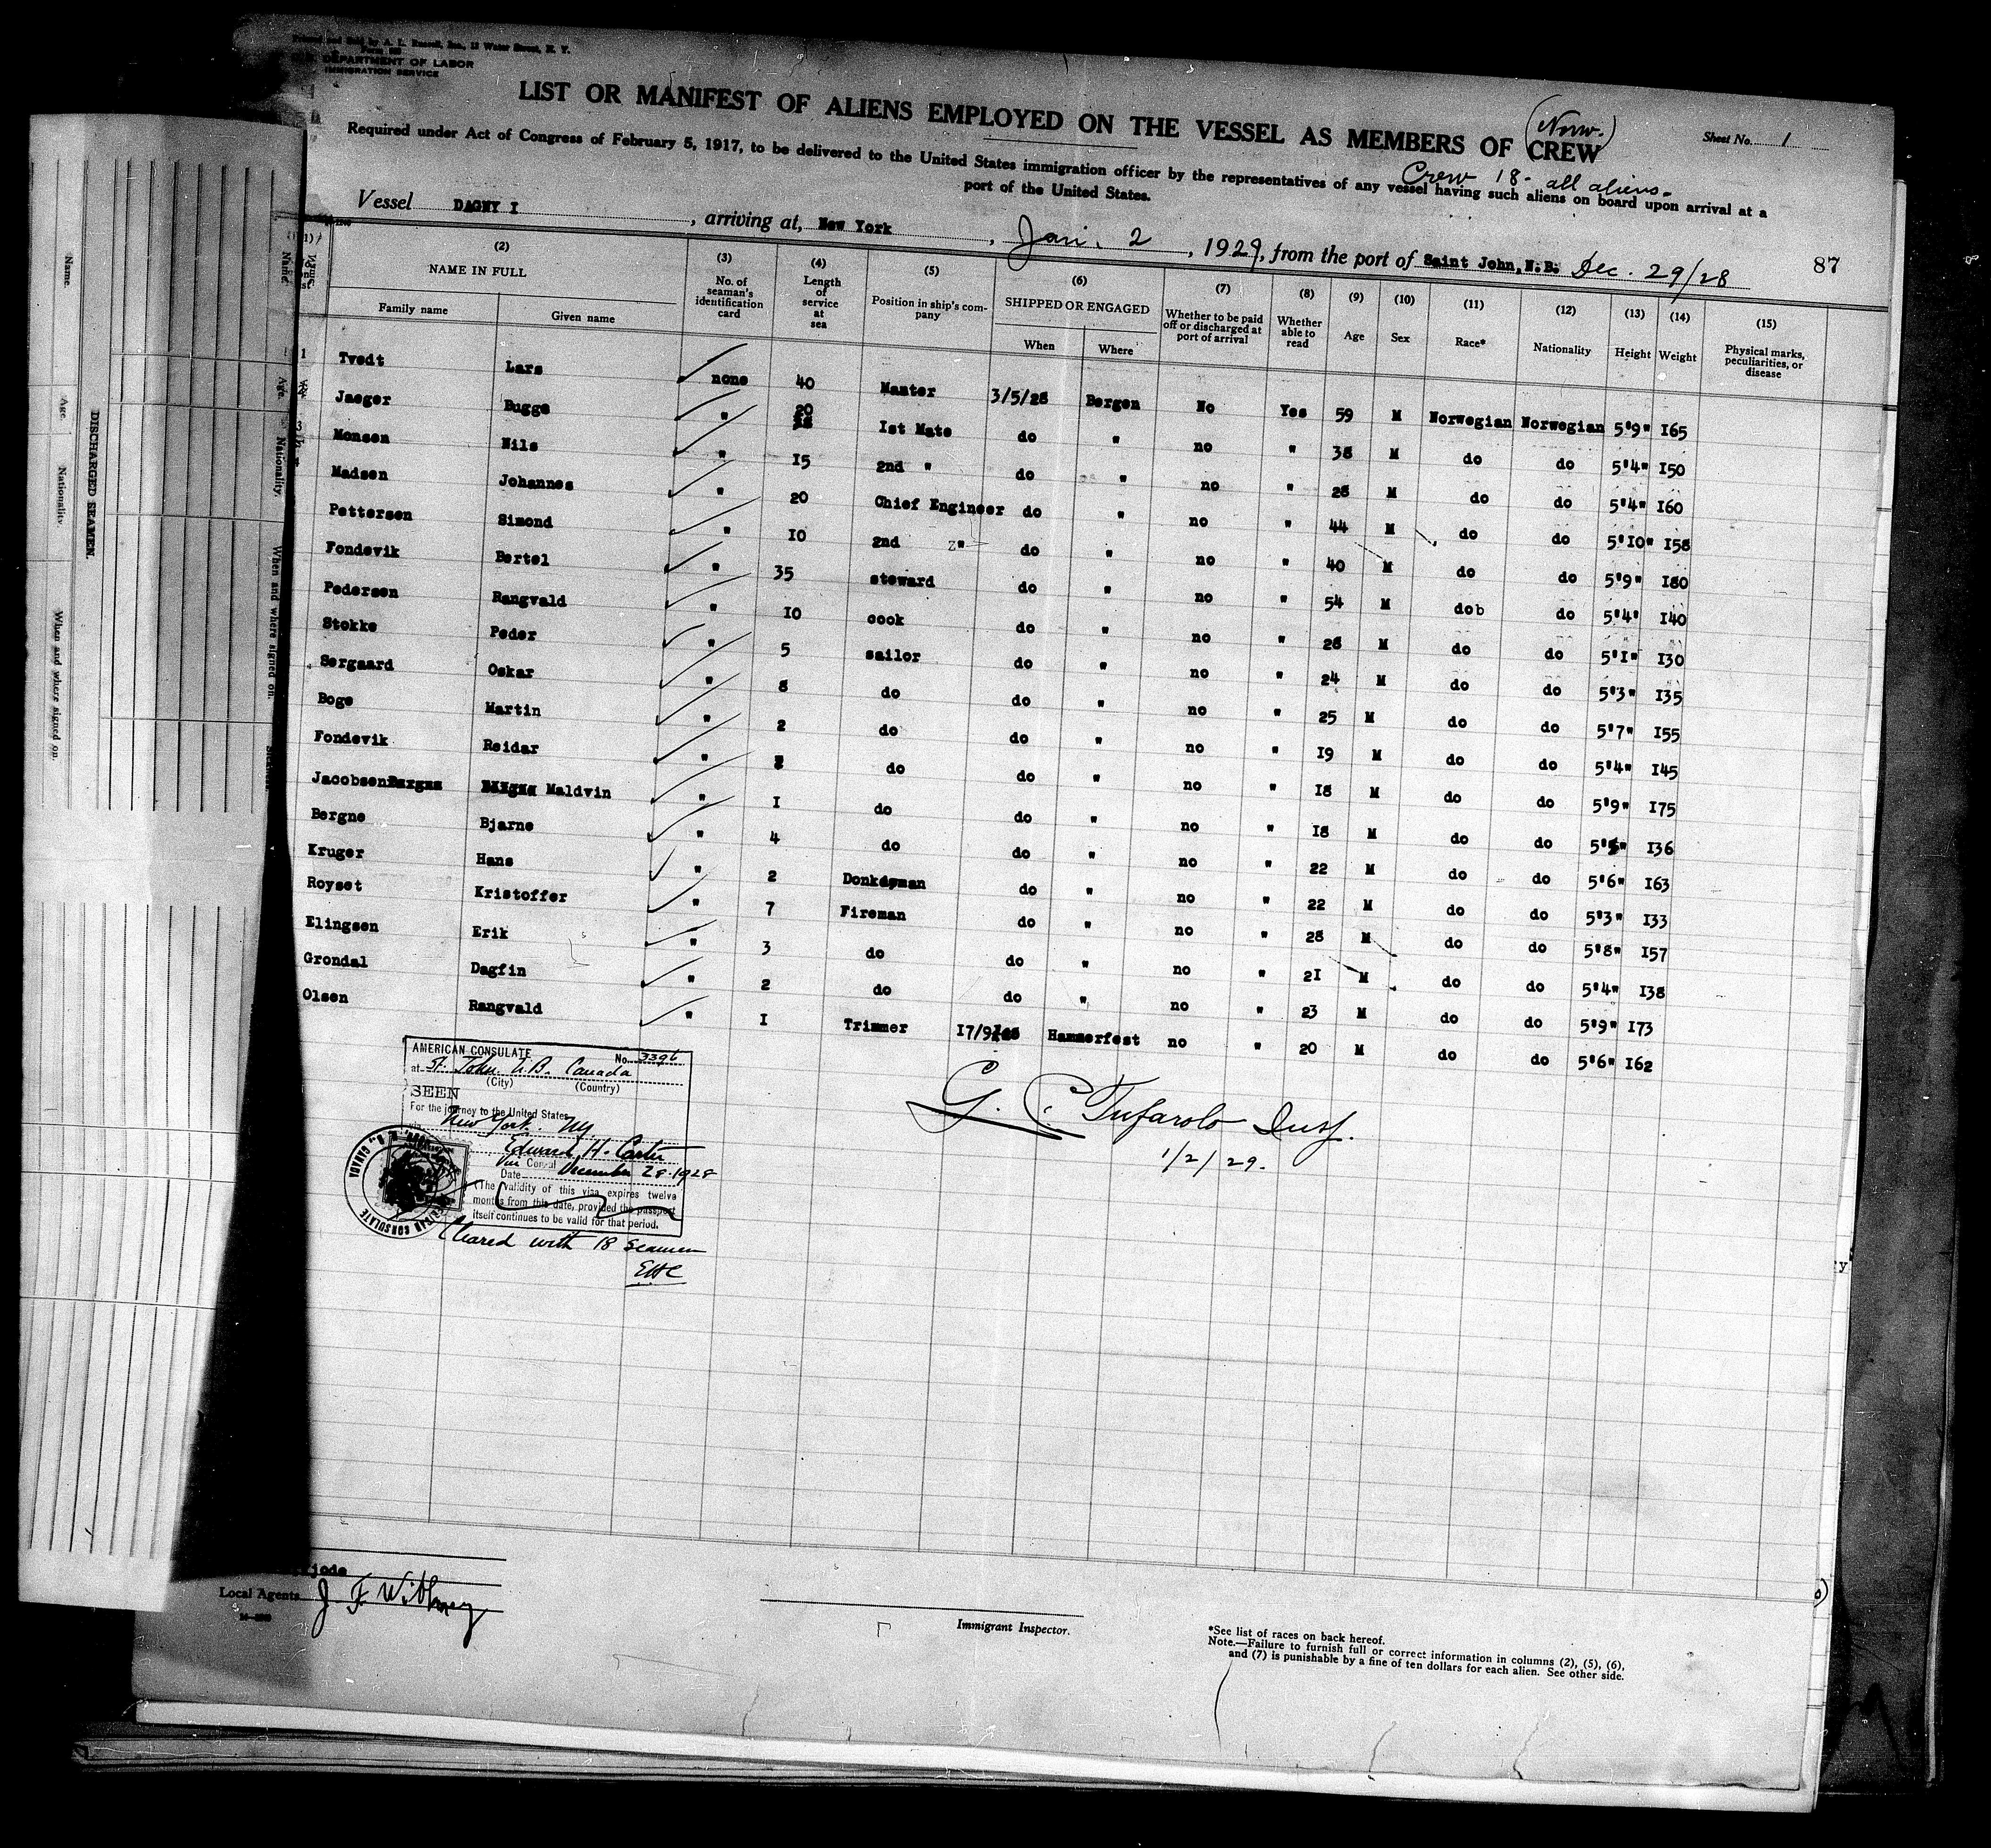 Form 689
U. S. DEPARTMENT OF LABOR
IMMIGRATION SERVICE
LIST OR MANIFEST OF ALIENS EMPLOYED ON THE VESSEL AS MEMBERS OF CREW
(Norw.)
Sheet No. 1
Required under Act of Congress of February 5, 1917, to be delivered to the United States immigration officer by the representatives of any vessel having such aliens on board upon arrival at a
port of the United States.
Crew 18 - all aliens -
Vessel DAGNY I, arriving at, New York, Jan. 2, 1929, from the port of Saint John, N.B. Dec. 29/28
87
(1) (2) (3) (4) (5) (6) (7) (8) (9) (10) (11) (12) (13) (14) (15)
NAME IN FULL Family name Given name No. of seaman's identification card Length of service at sea Position in ship's company SHIPPED OR ENGAGED When Where Whether to be paid off or discharged at port of arrival Whether able to read Age Sex Race* Nationality Height Weight Physical marks, peculiarities, or disease
1 Tvedt Lars none 40 Master 3/5/28 Bergen No Yes 59 M Norwegian Norwegian 5'9" I65
Jaeger Bugge " 20 Ist Mate do " no " 38 M do do 5'4" I50
3 Monsen Nils " I5 2nd " do " no " 28 M do do 5'4" I60
4 Madsen Johannes " 20 Chief Engineer do " no " 44 M do do 5'IO" I58
Pettersen Simond " IO 2nd " do " no " 40 M do do 5'9" I80
Fondevik Bertel " 35 steward do " no " 54 M dob do 5'4' I40
Pedersen Rangvald " IO cook do " no " 28 M do do 5'I" I30
Stokke Peder " 5 sailor do " no " 24 M do do 5'3" I35
Sørgaard Oskar " 8 do do " no " 25 M do do 5'7" I55
Boge Martin " 2 do do " no " I9 M do do 5'4" I45
Fondevik Reidar " do do " no " I8 M do do 5'9" I75
Jacobsen Maldvin " I do do " no " I8 M do do I36
Bergne Bjarne " 4 do do " no " 22 M do do 5'6" I63
Kruger Hans " 2 Donkeyman do " no " 22 M do do 5'3" I33
Royset Kristoffer " 7 Fireman do " no " 28 M do do 5'8" I57
Elingsen Erik " 3 do do " no " 2I M do do 5'4" I38
Grondal Dagfin " 2 do do " no " 23 M do do 5'9" I73
Olsen Rangvald " I Trimmer I7/9 Hammerfest no " 20 M do do 5'6" I62
AMERICAN CONSULATE No. 3396
at St. John N.B. Canada
(City) (Country)
SEEN
For the journey to the United States
New York. NY
Edward H. Carter
Vice Consul
Date December 28-1928
(The validity of this visa expires twelve
months from this date, provided the passport
itself continues to be valid for that period.
Cleared with 18 Seamen
EHC
G. C. Tufarolo Insp.
1/2/29.
Local Agents
Immigrant Inspector.
*See list of races on back hereof.
Note.—Failure to furnish full or correct information in columns (2), (5), (6),
and (7) is punishable by a fine of ten dollars for each alien. See other side.
DISCHARGED SEAMEN.
Name. Age. Nationality. When and where signed on.
Name. Age. Nationality. When and where signed on.